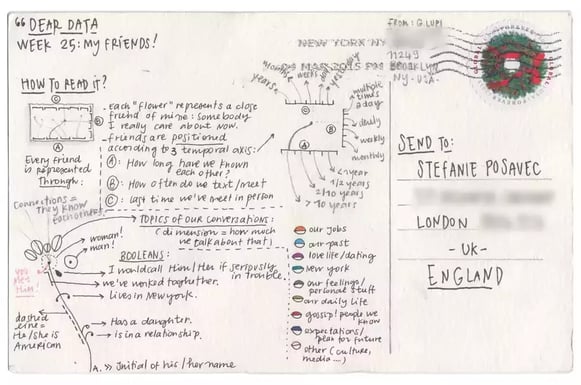 "DEAR DATA
WEEK 25: MY FRIENDS!
FROM: G. LUPI
11249
BROOKLYN
NY - USA
NEW YORK NY
HOW TO READ IT?
C
B
A
Every friend
is represented
Through:
- each "flower" represents a close
friend of mine: somebody
I really care about now.
- Friends are positioned
according to 3 temporal axis:
A: How long have we known
each other?
B: How often do we text/meet
C: last time we've met in person
years
months
weeks
yesterday
C
B
A
multiple
times
a day
daily
weekly
monthly
<1 year
1/2 years
>10 years
connections =
They know
each others!
TOPICS OF OUR CONVERSATIONS:
(dimension = how much
we talk about that)
woman!
man!
you
met
him!
BOOLEANS:
I would call Him/Her if seriously
in trouble.
we've worked together.
Lives in New York.
Has a daughter.
is in a relationship.
dashed
line =
He/she is
American
A. >> Initial of his/her name
our jobs
our past
love life/dating
new york
our feelings/
personal stuff
our daily life
gossip/people we
know
expectations/
plan for future
other (culture,
media....)
SEND TO:
STEFANIE POSAVEC
LONDON
- UK -
ENGLAND